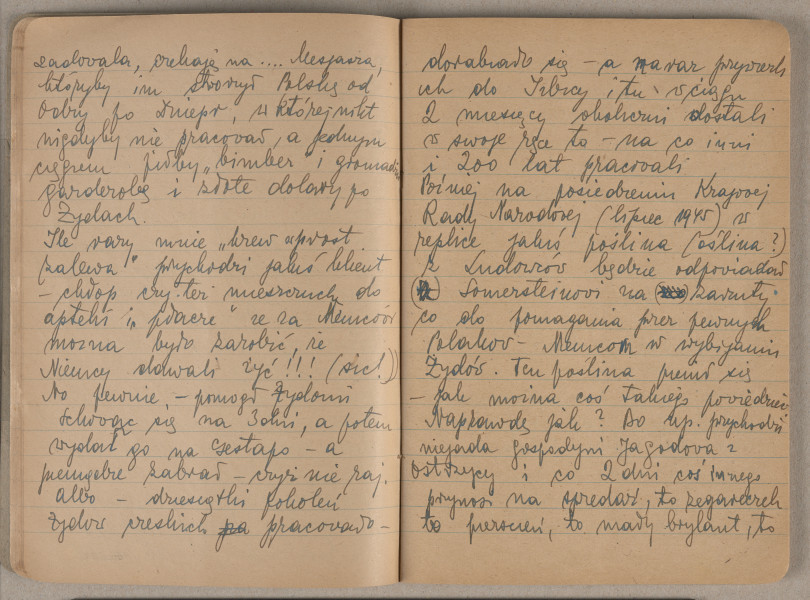 zadowala, czekają na .... Mesjasza,
któryby im stworzył Polskę od
Odry po Dniepr, w której nikt
nigdyby nie pracował, a jednym
ciągiem piłby „bimber" i gromadził
garderobę i złote dolary po
Żydach.
Ile razy mnie „krew wprost
zalewa" przychodzi jakiś klient
– chłop czy też mieszczuch do
apteki i „płacze" że za Niemców
można było zarobić, że
Niemcy dawali żyć!!! (sic!)
No pewnie – pomógł Żydowi
schować się na 3 dni, a potem
wydał go na gestapo – a
pieniądze zabrał – czyż nie raj.
Albo – dziesiątki pokoleń
Żydów czeskich pracowało –
dorabiało się – a naraz przywieźli
ich do Izbicy i tu w ciągu
2 miesięcy okoliczni dostali
w swoje ręce to – na co inni
i 200 lat pracowali
Później na posiedzeniu Krajowej
Rady Narodowej (lipiec 1945) w
replice jakiś poślina (oślina?)
z Ludowców będzie odpowiadał
Somersteinowi na zarzuty
co do pomagania przez pewnych
Polaków – Niemcom w wybijaniu
Żydów. Ten poślina pienił się
– jak można coś takiego powiedzieć
Naprawdę jak? Do np. przychodzi
niejada gospodyni Jagodowa z
Ostrzycy i co 2 dni coś innego
przynosi na sprzedaż, to zegareczek
to pierścień, to mały brylant, to